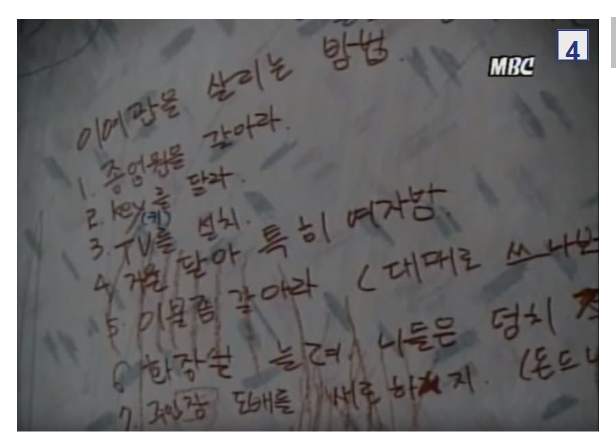 4
MBC
이 여관을 살리는 방법.
1. 종업원을 갈아라.
2. key를 달라.
(키)
3. TV를 설치.
4. 거울 달아 특히 여자방.
5. 이불좀 갈아라 (대때로 쓰나보
6 화장실 늘려. 니들은 덩치
7. 주인장 도배를 새로 하지. (돈드